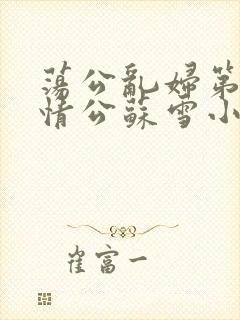 蕩公亂婦第
情公蘇雪小
崔富一